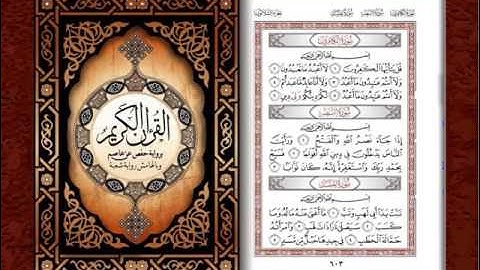 القرآن الكريم
برواية حفص عن عاصم
وبالهامش رواية شعبة
سُورَةُ الكَافِرُونَ
قُلْ يَٰٓأَيُّهَا ٱلْكَٰفِرُونَ ١ لَآ أَعْبُدُ مَا تَعْبُدُونَ ٢
وَلَآ أَنتُمْ عَٰبِدُونَ مَآ أَعْبُدُ ٣ وَلَآ أَنَا۠ عَابِدٌ مَّا عَبَدتُّمْ ٤
وَلَآ أَنتُمْ عَٰبِدُونَ مَآ أَعْبُدُ ٥ لَكُمْ دِينُكُمْ وَلِىَ دِينِ ٦
سُورَةُ النَّصْرِ
إِذَا جَآءَ نَصْرُ ٱللَّهِ وَٱلْفَتْحُ ١ وَرَأَيْتَ
ٱلنَّاسَ يَدْخُلُونَ فِى دِينِ ٱللَّهِ أَفْوَاجًا ٢ فَسَبِّحْ
بِحَمْدِ رَبِّكَ وَٱسْتَغْفِرْهُ إِنَّهُۥ كَانَ تَوَّابًۢا ٣
سُورَةُ المَسَدِ
تَبَّتْ يَدَآ أَبِى لَهَبٍ وَتَبَّ ١ مَآ أَغْنَىٰ عَنْهُ مَالُهُۥ وَمَا
كَسَبَ ٢ سَيَصْلَىٰ نَارًا ذَاتَ لَهَبٍ ٣ وَٱمْرَأَتُهُۥ
حَمَّالَةَ ٱلْحَطَبِ ٤ فِى جِيدِهَا حَبْلٌ مِّن مَّسَدٍۭ ٥
٦٠٣